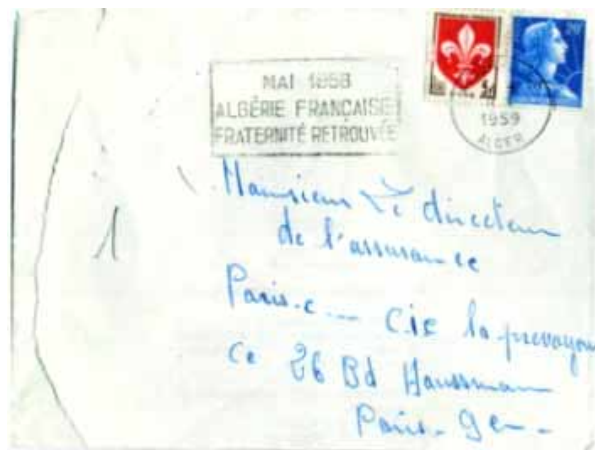 MAI 1958
ALGÉRIE FRANÇAISE
FRATERNITÉ RETROUVÉE
1959
ALGER
Monsieur Le directeur
de l'assurance
Paris.e - Cie la prevoyan
ce 26 Bd Haussmann
Paris - 9e -